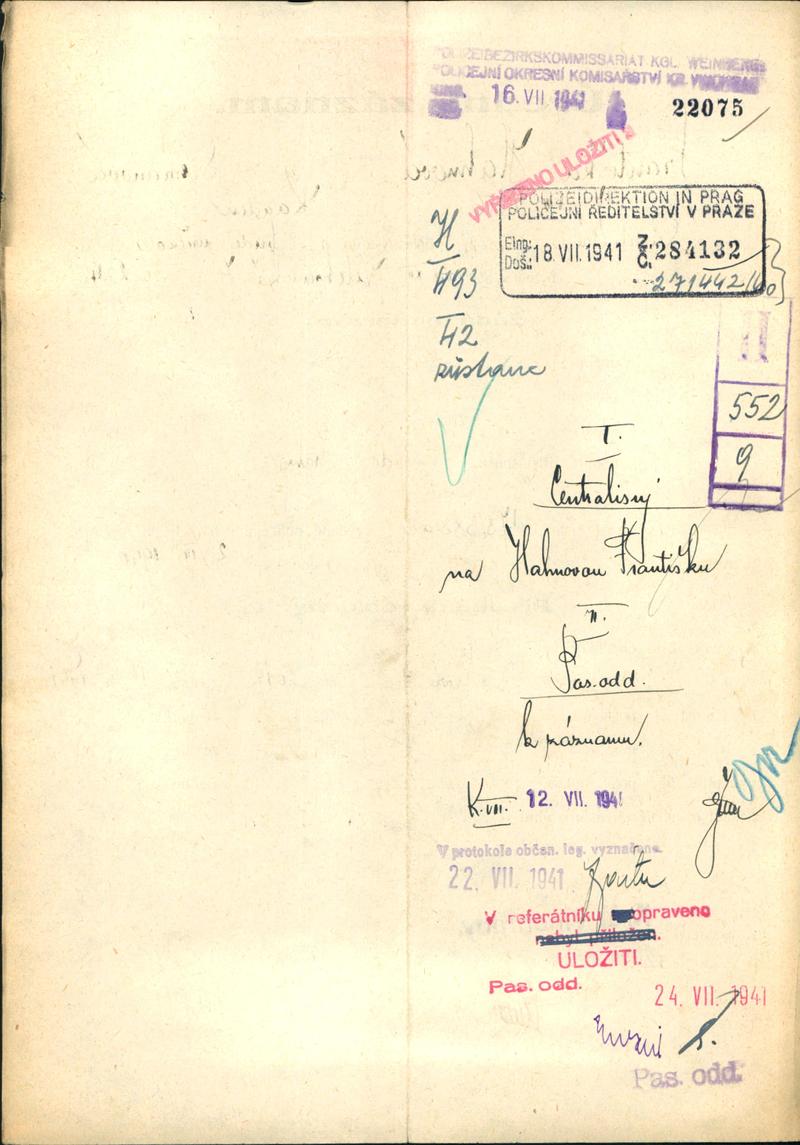 POLIZEIBEZIRKSKOMMISSARIAT KGL. WEINBERGE
POLICEJNÍ OKRESNÍ KOMISAŘSTVÍ KR. VINOHRADY
16. VII 1941
22075
VYŘÍZENO ULOŽITI
POLIZEIDIREKTION IN PRAG
POLICEJNÍ ŘEDITELSTVÍ V PRAZE
Eing.: Došl.: 18. VII. 1941 Z. Č. 284132
271442/40
H
493
42
zůstane
II
552
9
I.
Centralisuj
na Hahnovou Františku
II.
Pas. odd.
k záznamu.
K. VII. 12. VII. 1941
V protokole občan. leg. vyznačeno.
22. VII. 1941
V referátníku opraveno
nebyl přiložen.
ULOŽITI.
Pas. odd.
24. VII. 1941
Pas. odd.